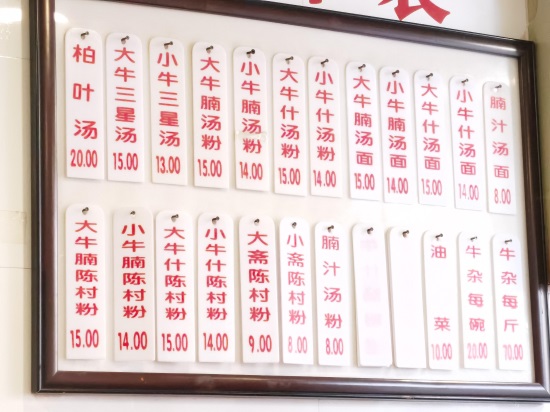 柏叶汤 20.00
大牛三星汤 15.00
小牛三星汤 13.00
大牛腩汤粉 15.00
小牛腩汤粉 14.00
大牛什汤粉 15.00
小牛什汤粉 14.00
大牛腩汤面 15.00
小牛腩汤面 14.00
大牛什汤面 15.00
小牛什汤面 14.00
腩汁汤面 8.00
大牛腩陈村粉 15.00
小牛腩陈村粉 14.00
大牛什陈村粉 15.00
小牛什陈村粉 14.00
大斋陈村粉 9.00
小斋陈村粉 8.00
腩汁汤粉 8.00
油菜 10.00
牛杂每碗 20.00
牛杂每斤 70.00